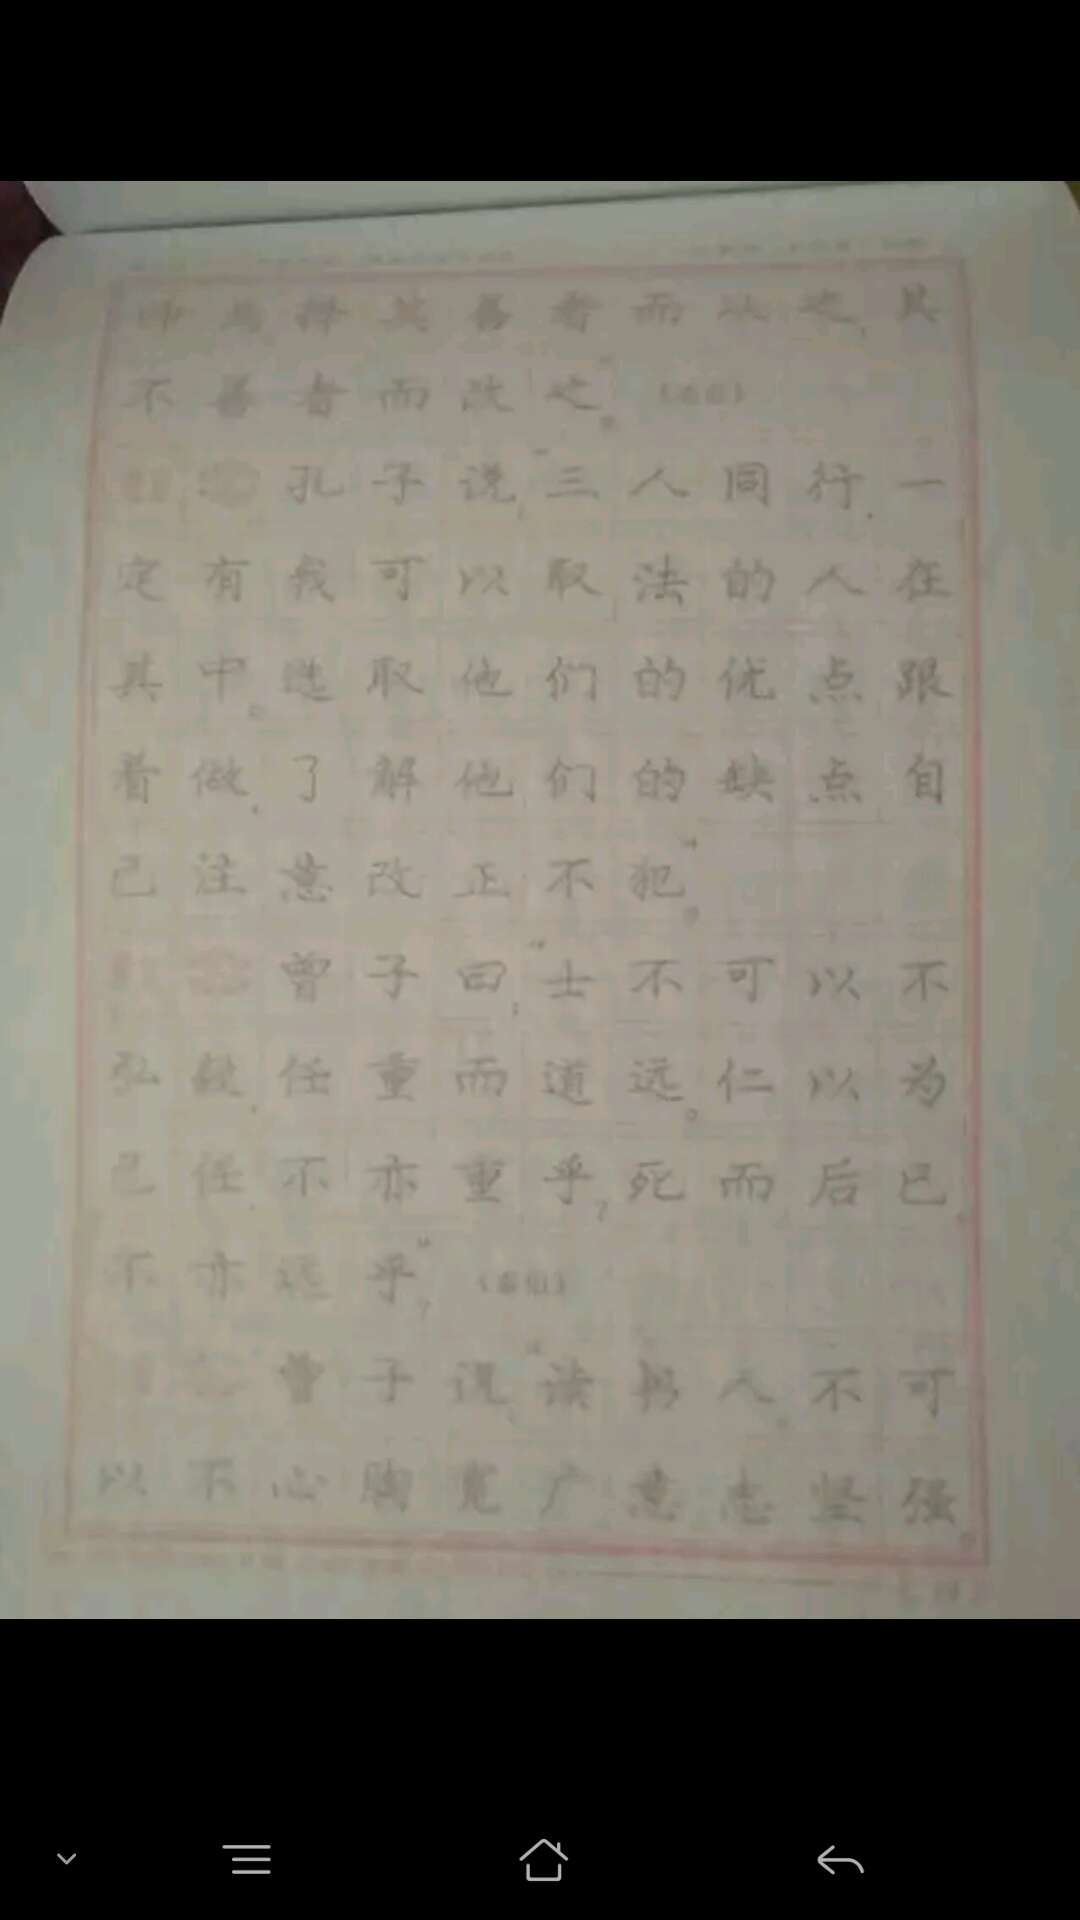 师焉择其善者而从之,其
不善者而改之。”
孔子说:“三人同行,一
定有我可以取法的人在
其中。选取他们的优点跟
着做,了解他们的缺点自
己注意改正不犯。”
曾子曰:“士不可以不
弘毅,任重而道远。仁以为
己任,不亦重乎?死而后已,
不亦远乎?”
曾子说:“读书人,不可
以不心胸宽广意志坚强。